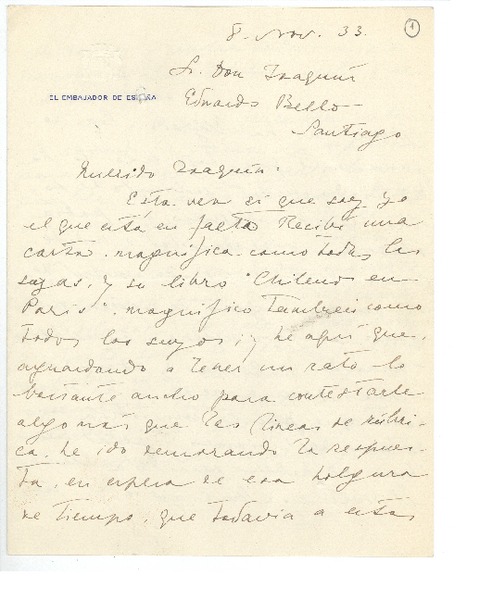 8. Nov. 33.
1
Sr. Don Joaquín
EL EMBAJADOR DE ESPAÑA
Edwards Bello—
Santiago
Querido Joaquín:
Esta vez sí que soy yo
el que está en falta. Recibí una
carta magnífica como todas las
suyas, y su libro "Chilenos en
París", magnífico también como
todos los suyos; y he aquí que,
aguardando a tener un rato lo
bastante ancho para contestarle
algo más que las líneas de rúbri-
ca, he ido demorando la respues-
ta, en espera de esa holgura
de tiempo, que todavía a estas